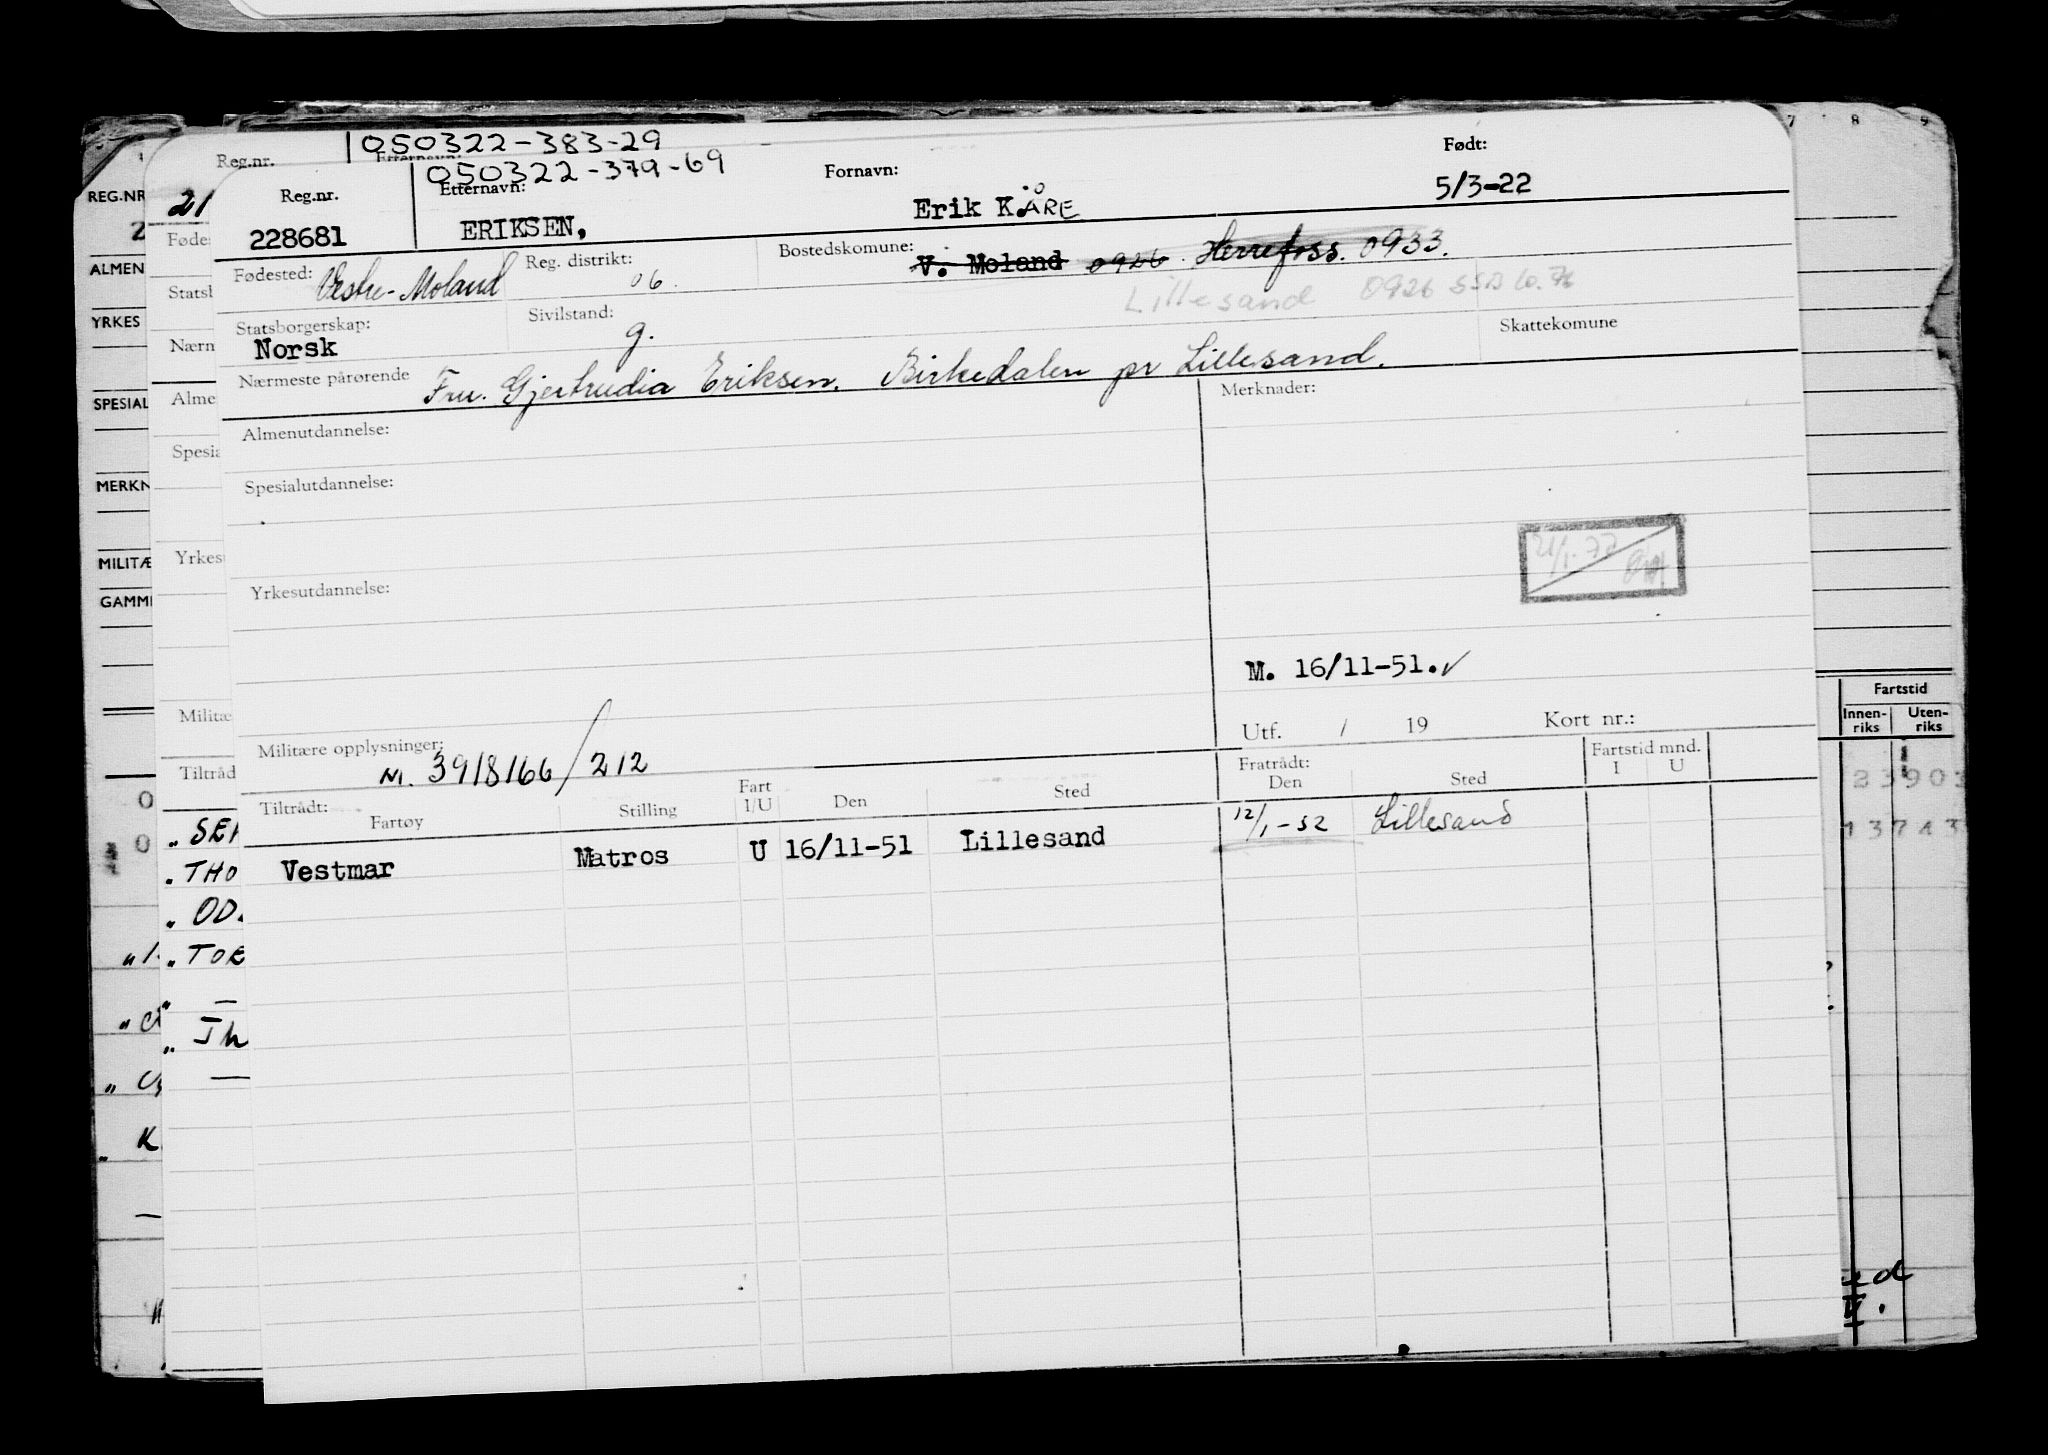 7 8 9
Reg.nr. 050322-383-29
REG.NR
21
Reg.nr. Etternavn: 050322-379-69 Fornavn: Født:
228681 ERIKSEN, Erik KÅRE 5/3-22
Fødested: Vestre-Moland Reg. distrikt: 06. Bostedskomune: V. Moland 0926 Herrefoss. 0933.
Lillesand 0926 SSB
Statsborgerskap: Norsk Sivilstand: g. Skattekomune
Nærmeste pårørende Fru. Gjertrudia Eriksen. Birkedalen pr Lillesand.
Almenutdannelse: Merknader:
Spesialutdannelse:
21/1.77
Yrkesutdannelse:
M. 16/11-51.✓
Utf. / 19 Kort nr.:
Militære opplysninger: M. 3918166/212
Tiltrådt: Fratrådt: Fartstid mnd.
Fartøy Stilling Fart I/U Den Sted Den Sted I U
Vestmar Matros U 16/11-51 Lillesand 12/1-52 Lillesand
ALMEN
YRKES
SPESIAL
MERKN
MILITÆ
GAMM
Fødes
Statsb
Nærn
Alme
Spesia
Yrkes
Militæ
Tiltråd
„ SE
„ THO
„ OD
„ TOR
„ —
„ Th
—
„ K
Fartstid
Innen-riks Uten-riks
23903
13713